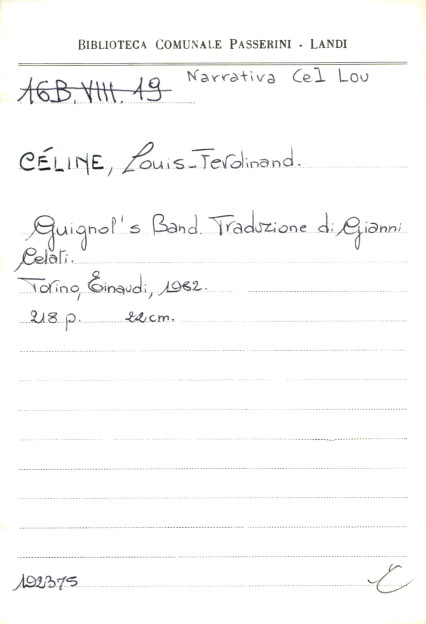 BIBLIOTECA COMUNALE PASSERINI - LANDI
16B.VIII.19 Narrativa Cel Lou
CÉLINE, Louis-Ferdinand.
Guignol's Band. Traduzione di Gianni
Celati.
Torino, Einaudi, 1982.
218 p. 22 cm.
192375